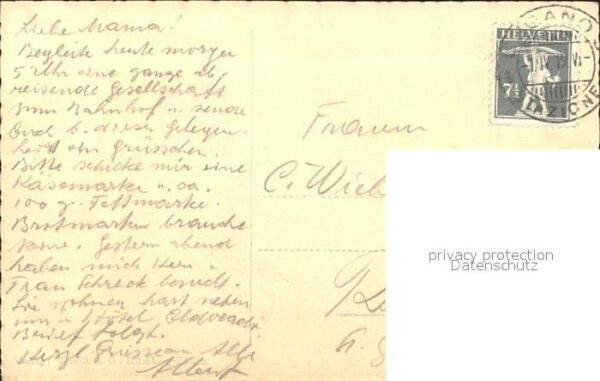 Liebe Mama!
Begleite heute morgen
5 Uhr eine ganze ab-
reisende Gesellschaft
zum Bahnhof u. sende
Euch b. dieser Gelegen-
heit ein Grüsschen.
Bitte schicke mir eine
Käsemarke u. ca.
100 g. Fettmarke.
Brotmarken brauche
keine. Gestern abend
haben mich Herr u.
Frau Schreck besucht.
Sie wohnen hart neben
uns i. Hotel Eldorado.
Brief folgt.
Herzl. Grüsse an Alle
Albert
Frauen
C. Wieb
HELVETIA
7½
LUGANO
STAZIONE
privacy protection
Datenschutz